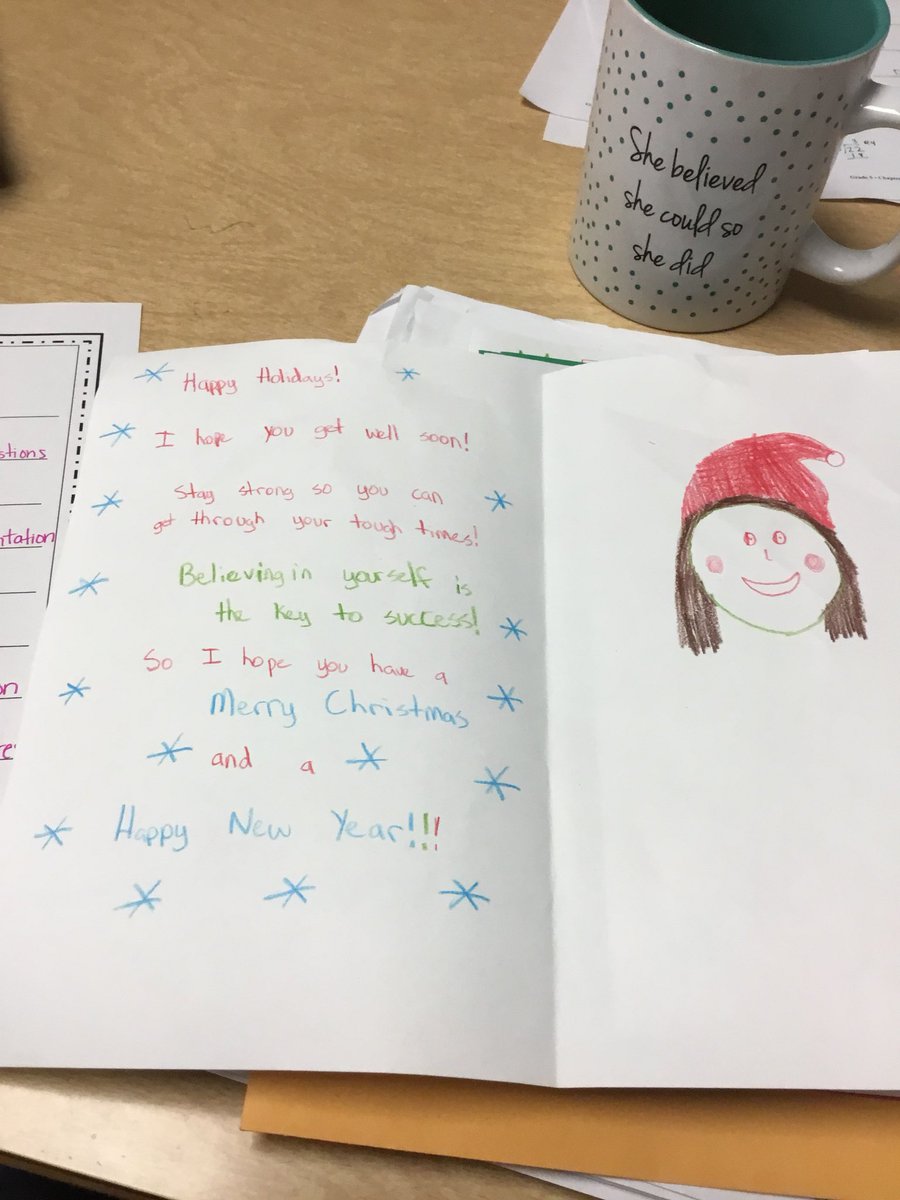 She believed
she could so
she did
Grade 5 • Chapter
stions
itation
on
re
Happy Holidays!
I hope you get well soon!
Stay strong so you can
get through your tough times!
Believing in yourself is
the key to success!
So I hope you have a
Merry Christmas
and a
Happy New Year!!!